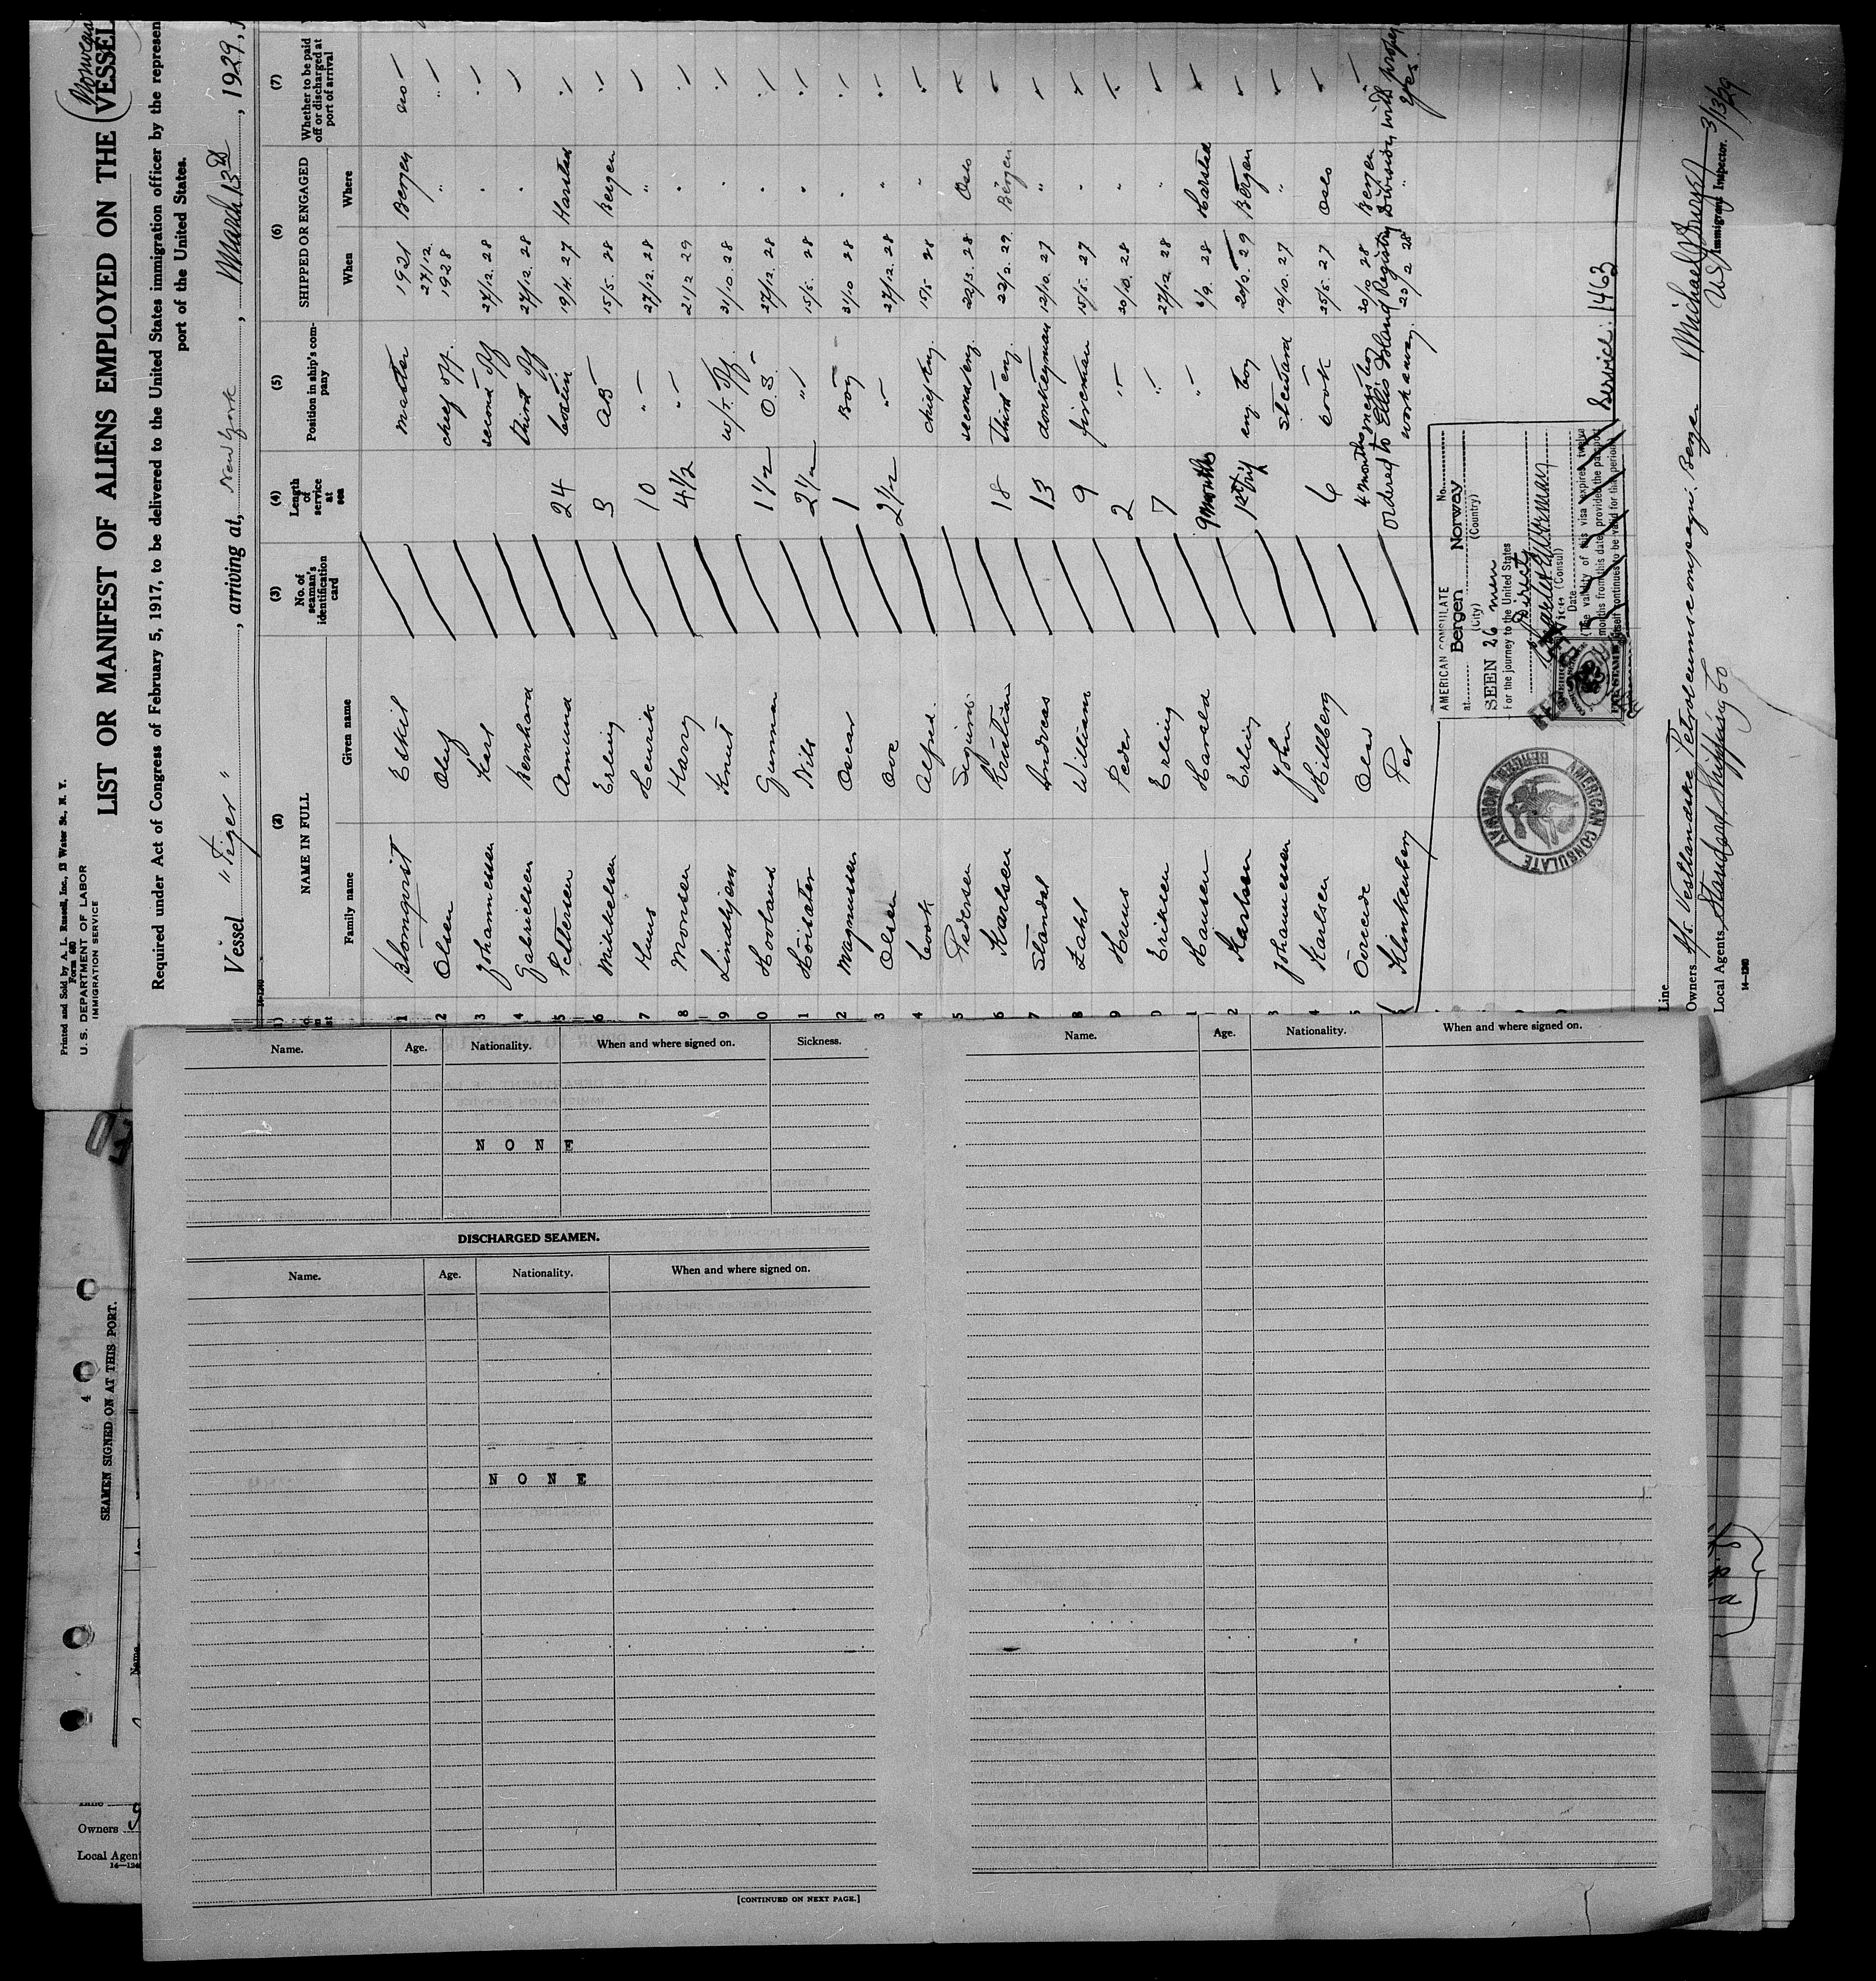 Printed and Sold by A. L. Russell, Inc., 13 Water St., N. Y.
Form 680
U. S. DEPARTMENT OF LABOR
IMMIGRATION SERVICE
LIST OR MANIFEST OF ALIENS EMPLOYED ON THE VESSEL
Required under Act of Congress of February 5, 1917, to be delivered to the United States immigration officer by the represen
port of the United States.
Vessel "Tiger", arriving at, New York, March 13th, 1929,
(2) (3) (4) (5) (6) (7)
NAME IN FULL No. of seaman's identification card Length of service at sea Position in ship's company SHIPPED OR ENGAGED Whether to be paid off or discharged at port of arrival
Family name Given name When Where
1 Blomqvist Eskil master 1921 Bergen no
2 Olsen Oluf chief off. 27/12. 1928 "
3 Johannessen Karl second off 27/12. 28 "
4 Gabrielsen Bernhard third off 27/12. 28 "
5 Pettersen Amund 24 19/4. 27 Harstad
6 Mikkelsen Erling 3 AB 15/5. 28 Bergen
7 Hus Henrik 10 " 27/12. 28 "
8 Monsen Harry 4 1/2 " 21/12 29 "
9 Lindbjerg Knut w/t. off. 31/10. 28 "
0 Hovland Gunnar 1 1/2 O.S. 27/12. 28 "
1 Höisæter Nils 2 1/2 " 15/5. 28 "
2 Magnussen Oscar 1 Boy 31/10 28 "
3 Olsen Ove 2 1/2 " 27/12. 28 "
4 Cook Alfred. chief eng. 15/5 28 "
5 Pedersen Sigurd second eng. 22/3. 28 Oslo
6 Karlsen Kristian 18 Third eng. 22/2. 29. Bergen
7 Standal Andreas 13 donkeyman 12/10. 27 "
8 Zahl William 9 fireman 15/5. 27 "
9 Hus Peder 2 " 20/10. 28 "
0 Eriksen Erling 7 " 27/12 28 "
1 Hansen Harald 9 months " 6/9. 28 Harstad
2 Karlsen Erling eng. boy 20/2. 29 Bergen
3 Johannessen John steward 12/10. 27 "
4 Karlsen Hillberg 6 cook 25/5. 27 Oslo
5 Övreeide Olav 4 months mess boy 30/10 28 Bergen
Ordered to Ellis Island Registry Division with proper
Klinkenberg Per work away. 20/2 28 " yes
AMERICAN CONSULATE No.
at Bergen Norway
(City) (Country)
SEEN 26 men
For the journey to the United States
Direct
Vice (Consul)
Date
(The validity of this visa expires twelve
months from this date, provided the passport
itself continues to be valid for that period)
AMERICAN CONSULATE
BERGEN, NORWAY
Service: 1463
Line
Owners A/s. Vestlandske Petroleumscompagni. Bergen
Local Agents Standard Shipping Co
14—1240
U S Immigrant Inspector. 3/13/29
Name. Age. Nationality. When and where signed on. Sickness.
N O N E
DISCHARGED SEAMEN.
Name. Age. Nationality. When and where signed on.
N O N E
[CONTINUED ON NEXT PAGE.]
Name. Age. Nationality. When and where signed on.
4
SEAMEN SIGNED ON AT THIS PORT.
Name
Owners
Local Agen
14—124